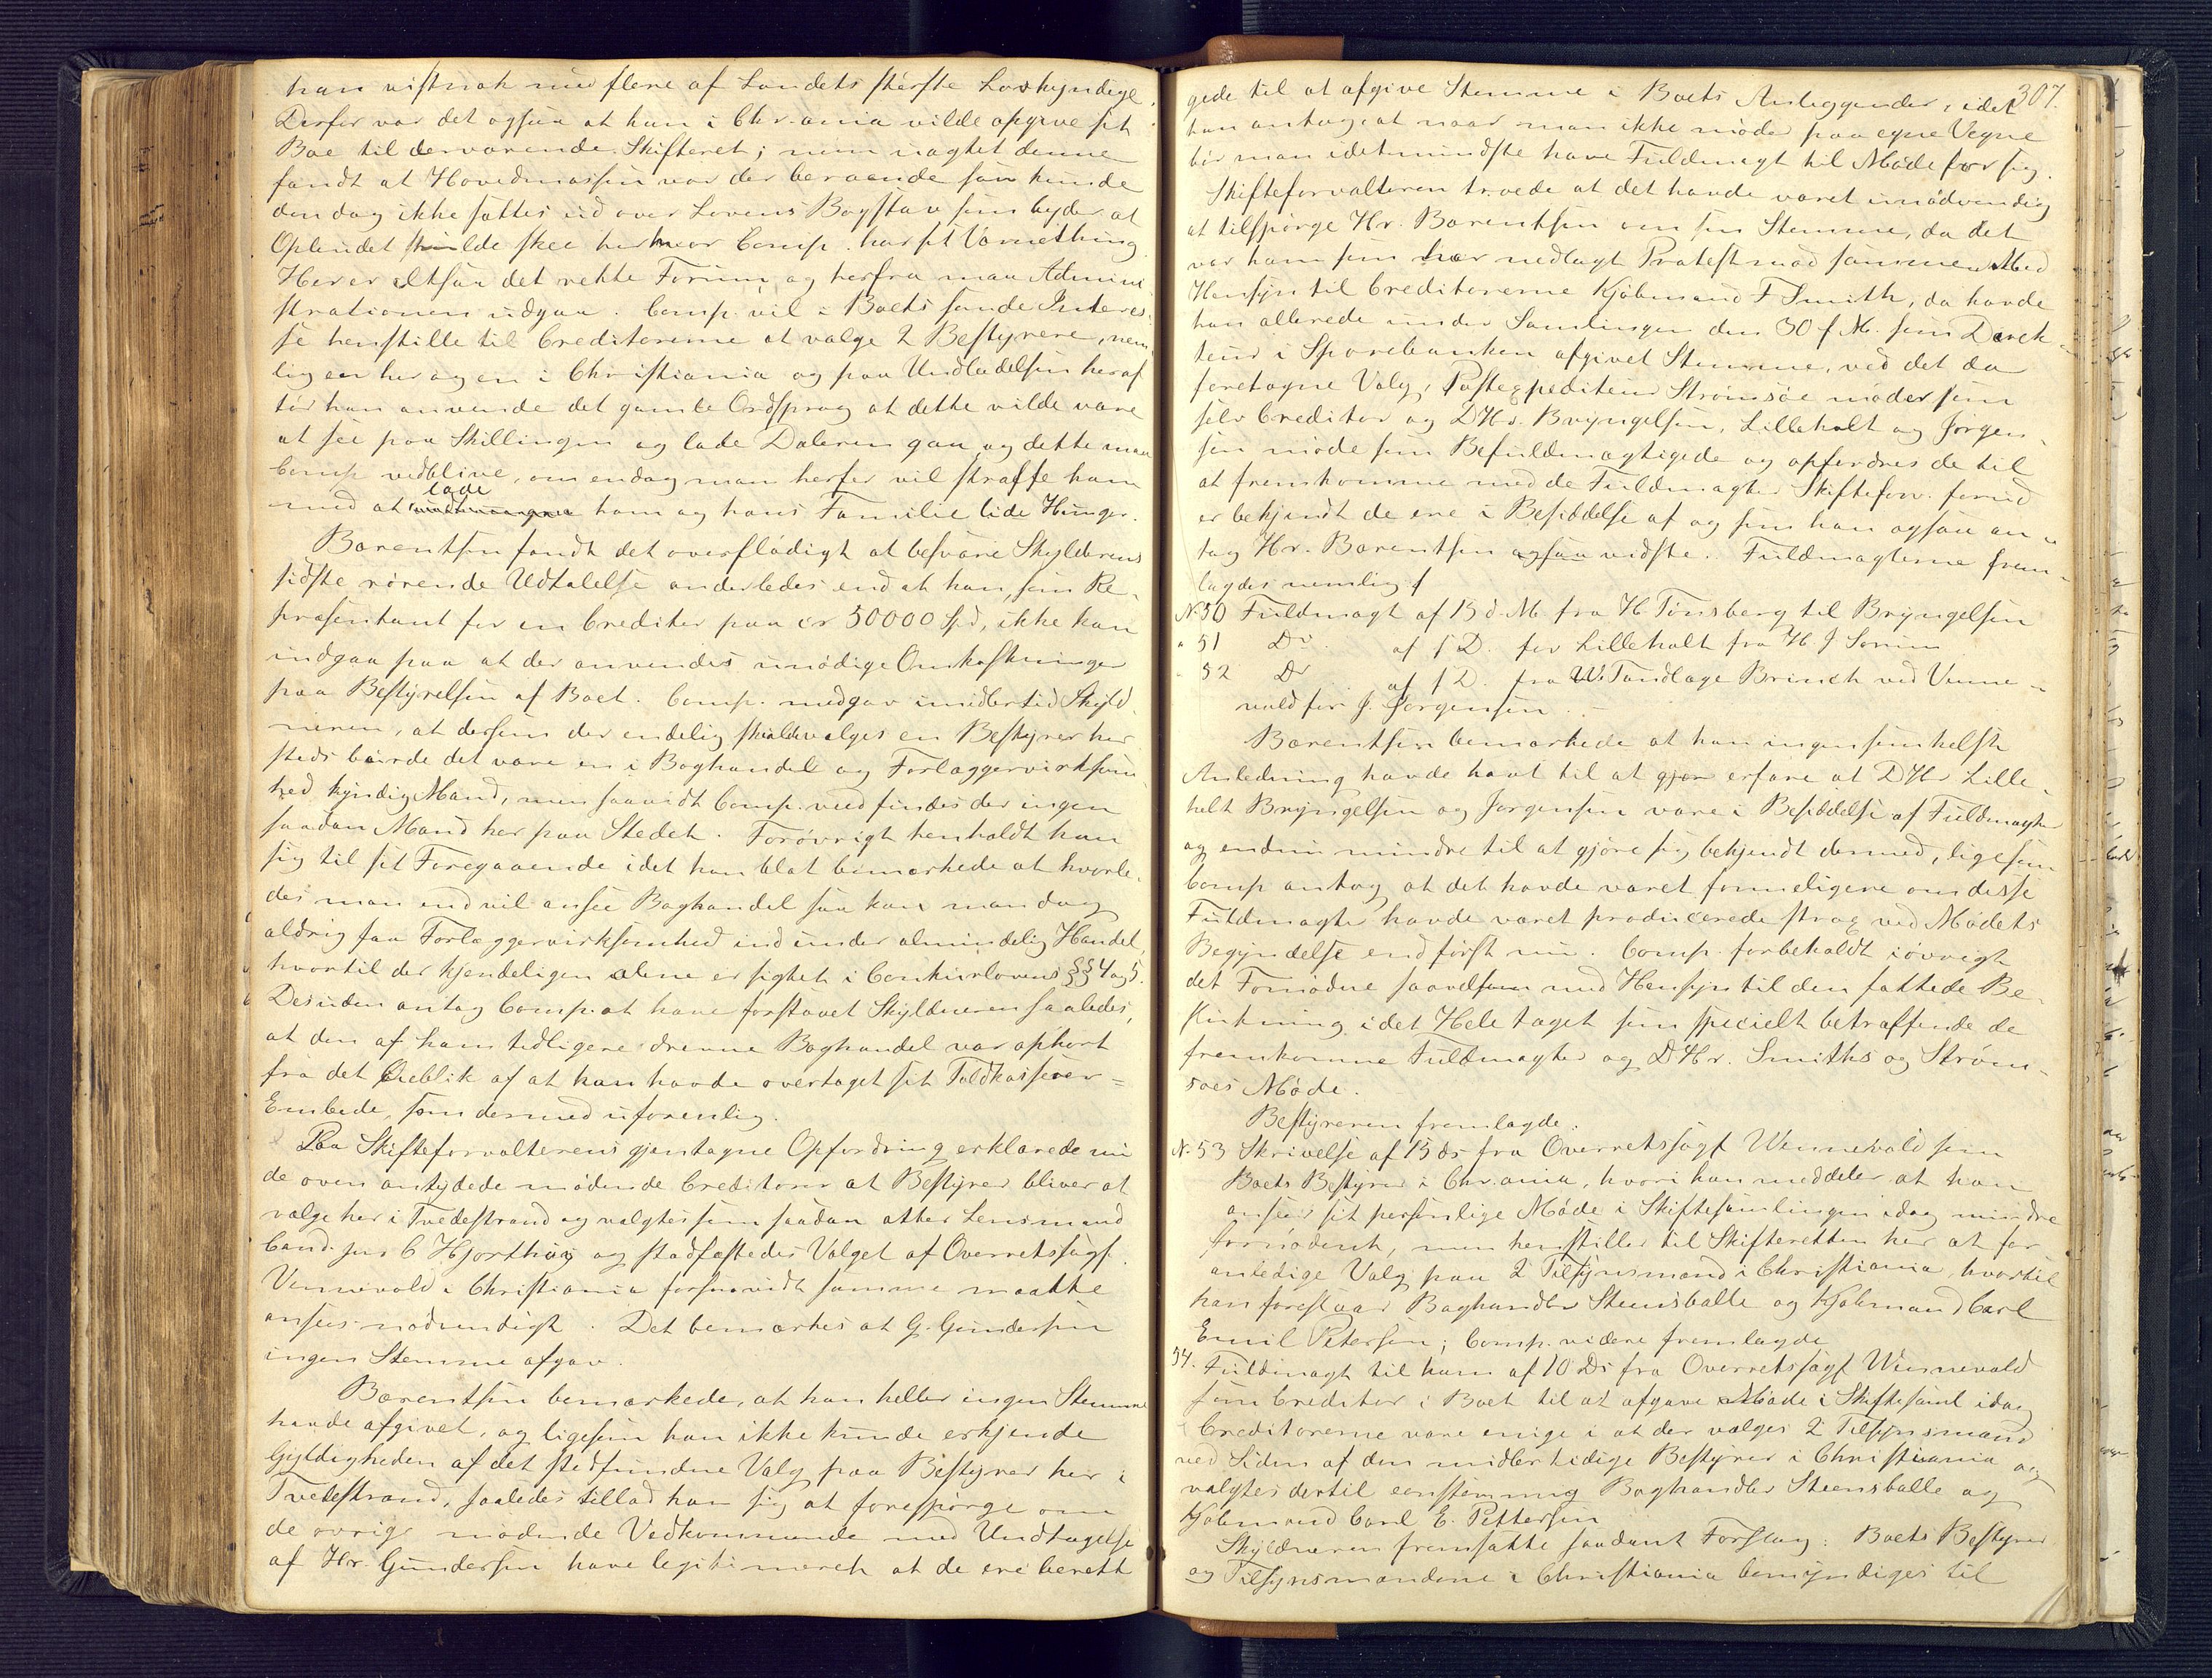 han vistnok med flere af Landets største Lovkyndige.
Derfor var det ogsaa at han i Chr.ania vilde opgive sit
Boe til derværende Skifteret; men uagtet denne
fandt at Hovedmassen var der beroende saa kunde
den dog ikke sættes ud over Lovens Bogstav som byder at
Opbudet skulde skee her hvor Comp. har sit Værnething.
Her er altsaa det rette Forum, og herfra maa Admini
strationen udgaa. Comp. vil i Boets sande Interes-
se henstille til Creditorerne at vælge 2 Bestyrere, nem-
lig en her og en i Christiania og paa Undladelsen heraf
tør han anvende det gamle Ordsprog at dette vilde være
at see paa Skillingen og lade Daleren gaa, og dette maa
Comp vedblive, om endog man herfor vil straffe ham
med at lade ham og hans Familie lide Hunger.
Barentsen fandt det overflødigt at besvare Skylderens
sidste rørende Udtalelse anderledes end at han, som Re-
præsentant for en Creditor paa cr 50000 Spd, ikke kan
indgaa paa at der anvendes unødige Omkostninger
paa Bestyrelsen af Boet. Comp. medgav imidlertid Skyld-
neren, at dersom der endelig skulde vælges en Bestyrer her
steds burde det være en i Boghandel og Forlæggervirksom
hed kyndig Mand, men saavidt Comp. veed findes der ingen
saadan Mand her paa Stedet. Forøvrigt henholdt han
sig til sit Foregaaende idet han blot bemærkede at hvorle-
des man end vil ansee Boghandel saa kan man dog
aldrig faa Forlæggervirksomhed ind under almindelig Handel,
hvortil der kjendeligen alene er sigtet i Conkurlovens §§ 4 og 5.
Desuden antog Comp. at have forstaaet Skyldneren saaledes,
at den af ham tidligere drevne Boghandel var ophørt
fra det Øieblik af at han havde overtaget sit Toldkasserer-
Embede, som dermed uforenlig.
Paa Skifteforvalterens gjentagne Opfordring erklærede nu
de oven antydede mødende Creditorer at Bestyrer bliver at
vælge her i Tvedestrand og valgtes som saadan atter Lensmand
Cand. jur C Hjorthøy og stadfæstedes Valget af Overretssagf.
Vennevold i Christiania forsaavidt samme maatte
ansees nødvendigt. Det bemærkes at G. Gundersen
ingen Stemme afgav.
Barentsen bemærkede, at han heller ingen Stemme
havde afgivet, og ligesom han ikke kunde erkjende
Gyldigheden af det stedfundne Valg paa Bestyrer her i
Tvedestrand, saaledes tillod han sig at forespørge om
de øvrige mødende Vedkommende med Undtagelse
af Hr. Gundersen have legitimeret at de ere berett
307.
gede til at afgive Stemme i Boets Anliggender, idet
han antog, at naar man ikke møder paa egne Vegne
bør man idetmindste have Fuldmagt til Møde for sig.
Skifteforvalteren troede at det havde været unødvendig
at tilspørge Hr. Barentsen om sin Stemme, da det
var ham som har nedlagt Protest mod sammen. Med
Hensyn til Creditorerne Kjøbmand F Smith, da havde
han allerede under Samlingen den 30 f. M. som Direk-
teur i Sparebanken afgivet Stemme, ved det da
foretagne Valg, Postexpediteur Strømsøe møder som
selv Creditor og DHr. Bryngelsen, Lilleholt og Jørgen-
sen møde som Befuldmægtigede og opfordres de til
at fremkomme med de Fuldmagter Skifteforv. forud
er bekjendt de ere i Besiddelse af og som han ogsaa an-
tog Hr. Barentsen ogsaa vidste. Fuldmagterne frem-
lagdes nemlig
N. 50 Fuldmagt af 13 d. M. fra H Tønsberg til Bryngelsen
" 51 Do. af s. D. for Lilleholt fra H J Sørum
" 52 Do af s. D. fra W. Tandlæge Brinch ved Venne-
vold for J. Jørgensen.
Barentsen bemærkede at han ingensomhelst
Anledning havde havt til at erfare at DHr Lille-
holt Bryngelsen og Jørgensen vare i Besiddelse af Fuldmagter
og endnu mindre til at gjøre sig bekjendt dermed, ligesom
Comp antog, at det havde været formeligere om disse
Fuldmagter havde været producerede strax ved Mødets
Begyndelse end først nu. Comp. forbeholdt iøvrigt
det Fornødne saavelsom med Hensyn til den fattede Be-
slutning i det Hele taget som specielt betræffende de
fremkomne Fuldmagter og DHr. Smiths og Strøm-
søes Møde.
Bestyreren fremlagde:
N. 53 Skrivelse af 13 ds fra Overretssagf Vennevold som
Boets Bestyrer i Chr.ania, hvori han meddeler at han
anseer sit personlige Møde i Skiftesamlingen idag mindre
fornødent, men henstiller til Skifteretten her at for
anledige Valg paa 2 Tilsynsmænd i Christiania, hvortil
han foreslaar Boghandler Steensballe og Kjøbmand Carl
Emil Petersen; Comp. videre fremlagde
54. Fuldmagt til ham af 10 Ds fra Overretssagf Vennevold
som Creditor i Boet til at afgive Møde i Skiftesaml idag
Creditorerne vare enige i at der vælges 2 Tilsynsmænd
ved Siden af den midlertidige Bestyrer i Christiania og
valgtes dertil eenstemmig Boghandler Steensballe og
Kjøbmand Carl E. Pettersen
Skyldneren fremsatte saadant Forslag: Boets Bestyrer
og Tilsynsmændene i Christiania bemyndiges til